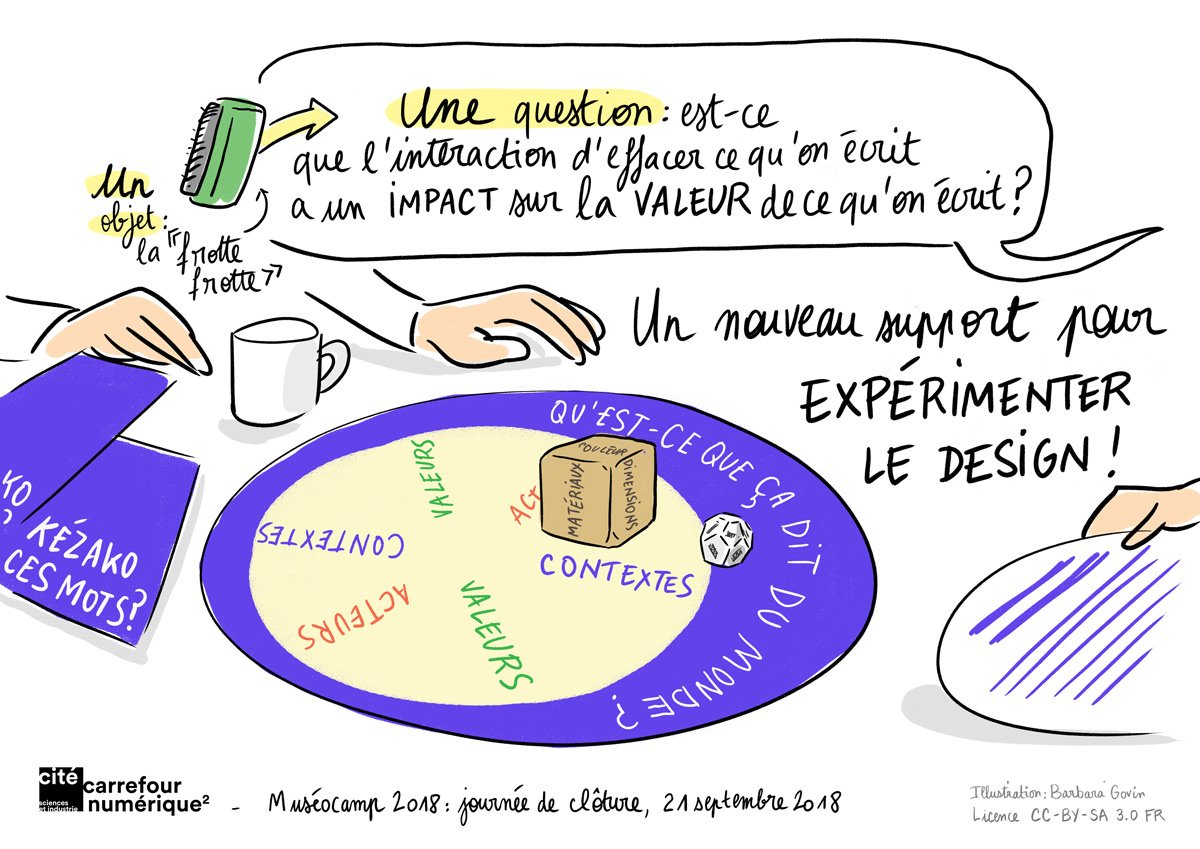 Une question : est-ce
que l'interaction d'effacer ce qu'on écrit
a un IMPACT sur la VALEUR de ce qu'on écrit ?
Un
objet :
la "frotte
frotte"
Un nouveau support pour
EXPÉRIMENTER
LE DESIGN !
QU'EST-CE QUE ÇA DIT DU MONDE ?
VALEURS
CONTEXTES
ACTEURS
VALEURS
ACT
CONTEXTES
COULEUR
MATÉRIAUX
DIMENSIONS
KO
?
KÉZAKO
CES MOTS?
cité
sciences
et industrie
carrefour
numérique²
- Muséocamp 2018 : journée de clôture, 21 septembre 2018
Illustration : Barbara Govin
Licence CC-BY-SA 3.0 FR